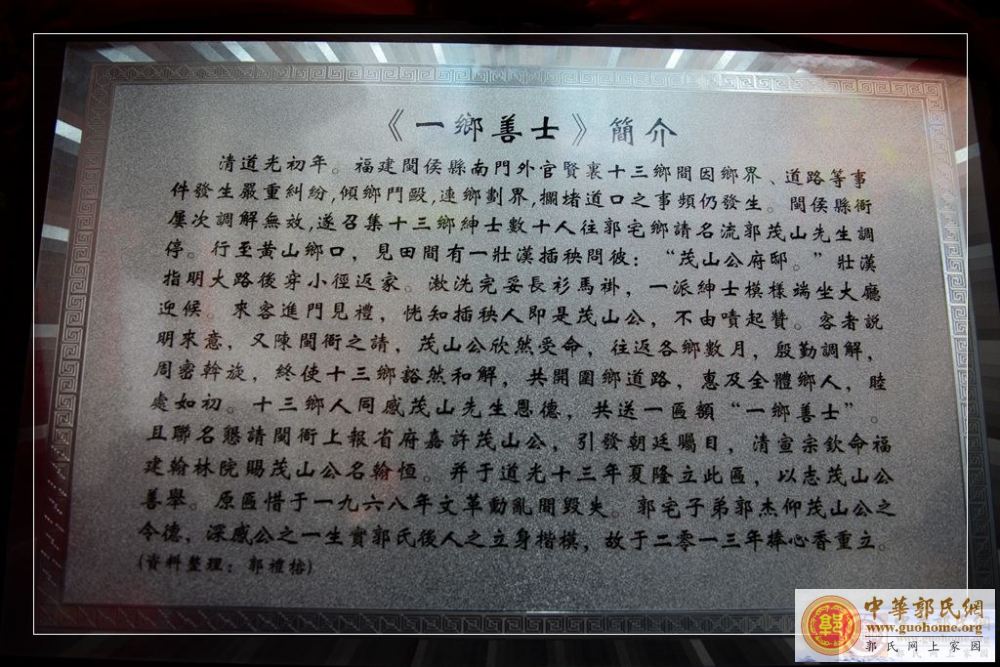 《一鄉善士》簡介
清道光初年。福建閩侯縣南門外官賢裏十三鄉間因鄉界、道路等事
件發生嚴重糾紛,傾鄉鬥毆,連鄉劃界,攔堵道口之事頻仍發生。閩侯縣衙
屢次調解無效,遂召集十三鄉紳士數十人往郭宅鄉請名流郭茂山先生調
停。行至黃山鄉口，見田間有一壯漢插秧問彼：“茂山公府邸。”壯漢
指明大路後穿小徑返家。漱洗完妥長衫馬褂，一派紳士模樣端坐大廳
迎候。來客進門見禮，恍知插秧人即是茂山公，不由嘖起贊。客者説
明來意，又陳閩衙之請，茂山公欣然受命，往返各鄉數月，殷勤調解，
周密斡旋，終使十三鄉豁然和解，共開圍鄉道路，惠及全體鄉人，睦
處如初。十三鄉人同感茂山先生恩德，共送一匾額“一鄉善士”。
且聯名懇請閩衙上報省府嘉許茂山公，引發朝廷矚目，清宣宗欽命福
建翰林院賜茂山公名翰恒。并于道光十三年夏隆立此匾，以志茂山公
善舉。原匾惜于一九六八年文革動亂間毀失。郭宅子弟郭杰仰茂山公之
令德，深感公之一生實郭氏後人之立身楷模，故于二零一三年捧心香重立。
(資料整理：郭禮榕)
中華郭氏網
www.guohome.org
郭氏网上家园